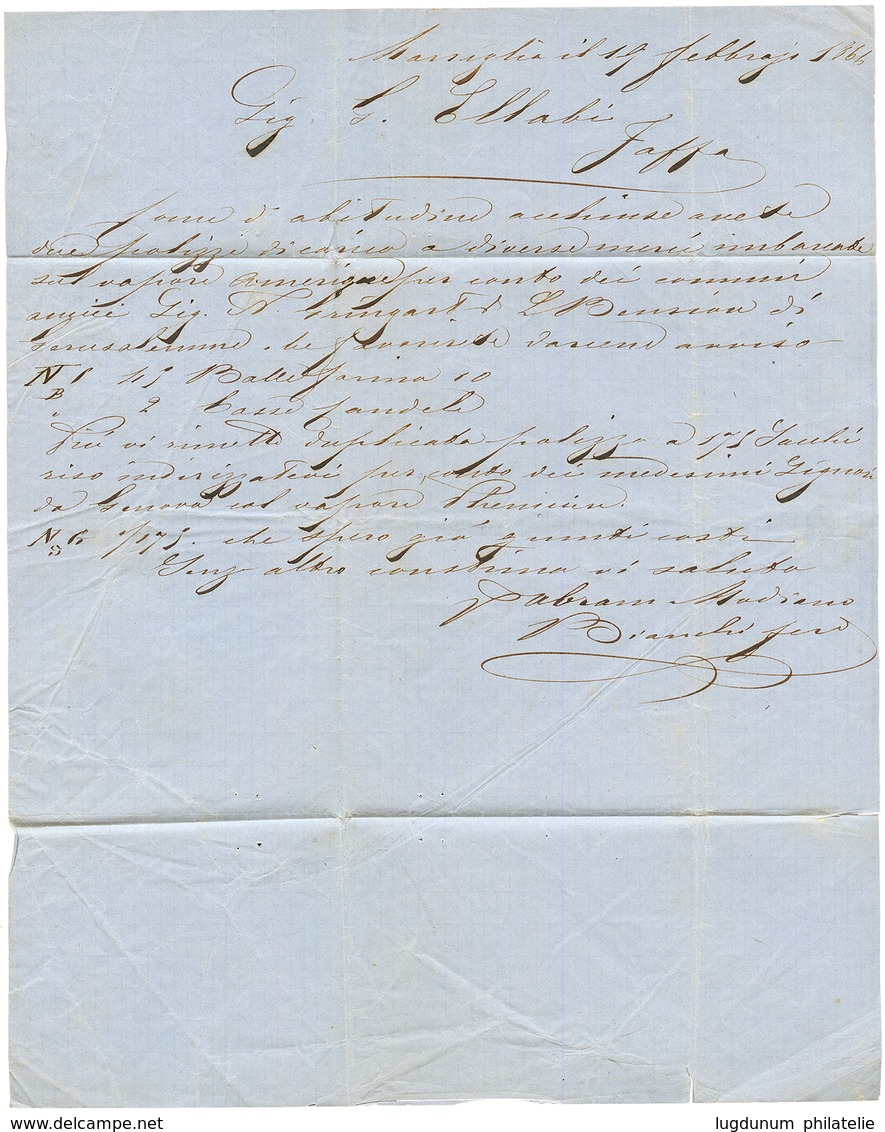 Marsiglia il 19 febbrajo 1866
Sig S. Ellabi
Jaffa
Come d'abitudine acchiuse avete
due polizze di carico a diverse merci imbarcate
sul vapore Amerique per conto dei comuni
amici Sig. N. Gringart & L Bension di
Gerusalemme che favorirete darcene avviso
N 1 45 Balle farina 10
B
" 2 Casse candele
Più vi rimetto duplicata polizza a 175 Sacchi
riso indirizzatevi per conto dei medesimi Signori
da Genova col vapore Phenicien.
N 1/175. che spero già giunti costì
Senz altro constrino vi saluto
p Abram Modiano
Bianchi
www.delcampe.net
lugdunum philatelie